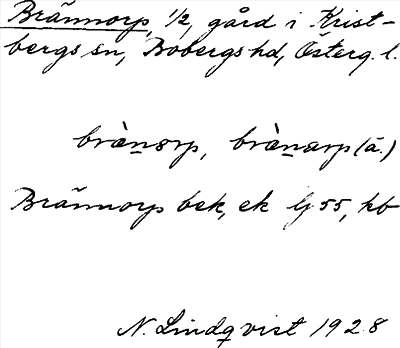 Brännorp, 1/2, gård i Krist-
bergs sn, Bobergs hd, Österg. l.
brànorp, brànarp (ä.)
Brännorp bsk, ek lj 55, kb
N. Lindqvist 1928